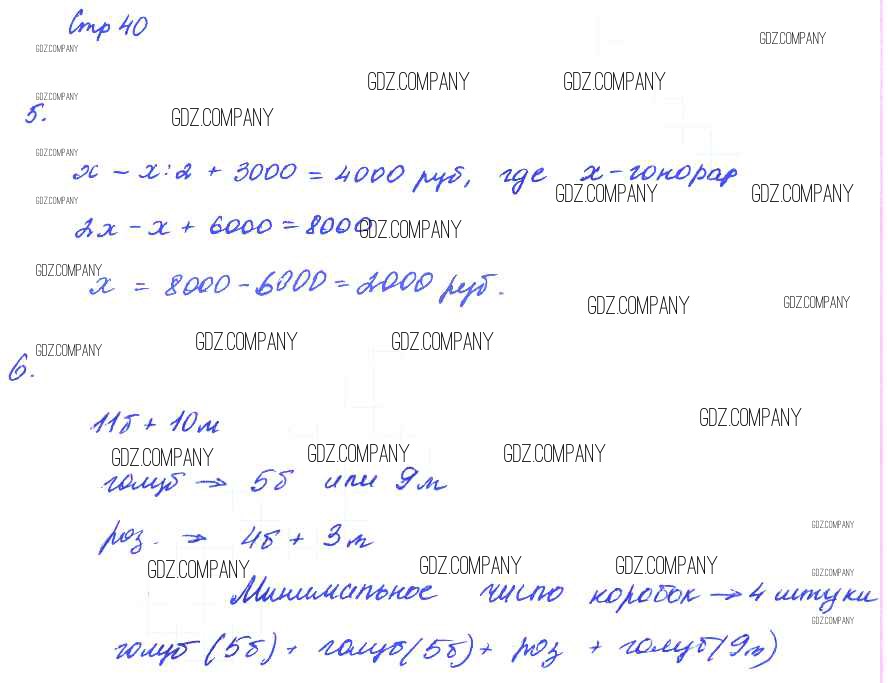 Стр 40
GDZ.COMPANY
GDZ.COMPANY
GDZ.COMPANY GDZ.COMPANY
GDZ.COMPANY
5.
GDZ.COMPANY
GDZ.COMPANY
x - x:2 + 3000 = 4000 руб, где x - гонорар
GDZ.COMPANY GDZ.COMPANY
GDZ.COMPANY
2x - x + 6000 = 8000
GDZ.COMPANY
GDZ.COMPANY
x = 8000 - 6000 = 2000 руб.
GDZ.COMPANY GDZ.COMPANY
GDZ.COMPANY GDZ.COMPANY
GDZ.COMPANY
6.
11б + 10м
GDZ.COMPANY
GDZ.COMPANY GDZ.COMPANY GDZ.COMPANY
голуб → 5б или 9м
GDZ.COMPANY
роз. → 4б + 3м
GDZ.COMPANY GDZ.COMPANY GDZ.COMPANY
GDZ.COMPANY
Минимальное число коробок → 4 штуки
GDZ.COMPANY
голуб (5б) + голуб (5б) + роз + голуб (9м)